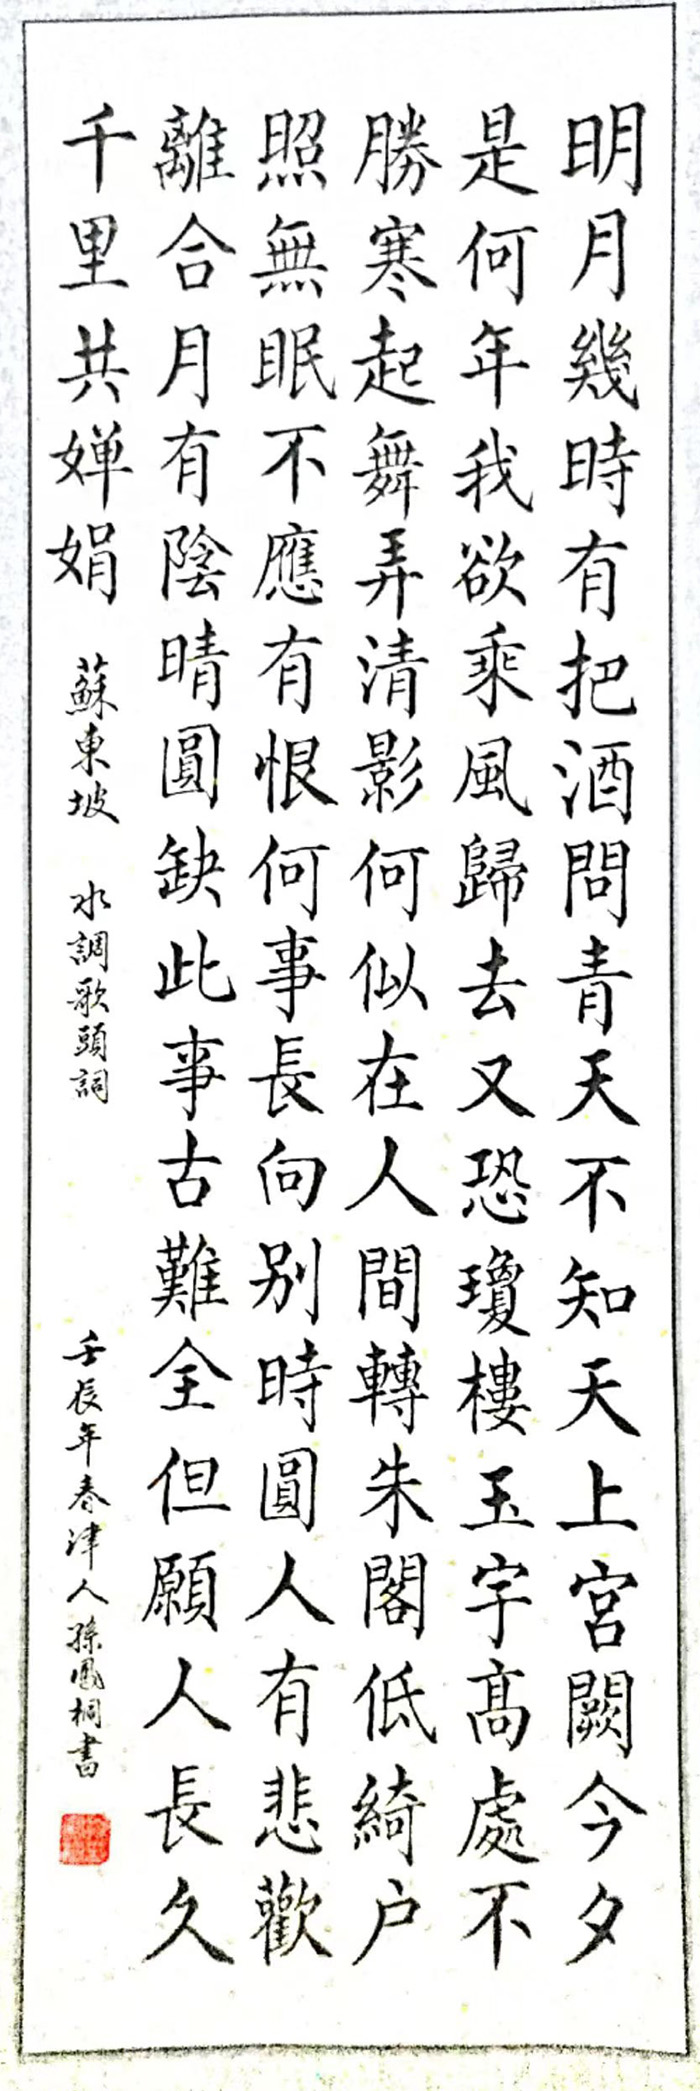 明月幾時有把酒問青天不知天上宮闕今夕
是何年我欲乘風歸去又恐瓊樓玉宇高處不
勝寒起舞弄清影何似在人間轉朱閣低綺户
照無眠不應有恨何事長向别時圓人有悲歡
離合月有陰晴圓缺此事古難全但願人長久
千里共嬋娟
蘇東坡 水調歌頭詞
壬辰年春津人孫鳳桐書